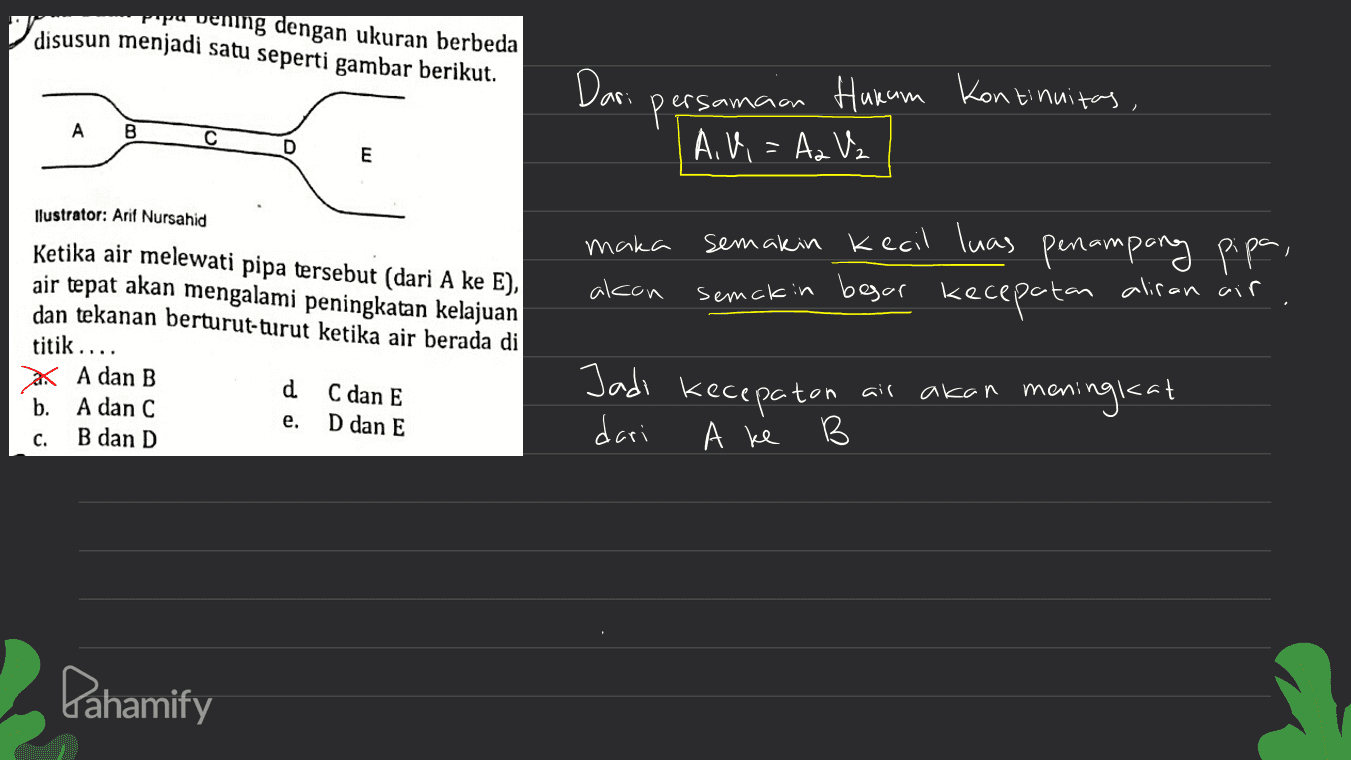 pipa bening dengan ukuran berbeda
disusun menjadi satu seperti gambar berikut.
A B C D E
Ilustrator: Arif Nursahid
Ketika air melewati pipa tersebut (dari A ke E),
air tepat akan mengalami peningkatan kelajuan
dan tekanan berturut-turut ketika air berada di
titik ....
a. A dan B
b. A dan C
c. B dan D
d. C dan E
e. D dan E
Dari persamaan Hukum Kontinuitas,
A₁V₁ = A₂V₂
maka semakin kecil luas penampang pipa,
akan semakin besar kecepatan aliran air.
Jadi kecepatan air akan meningkat
dari A ke B
Pahamify